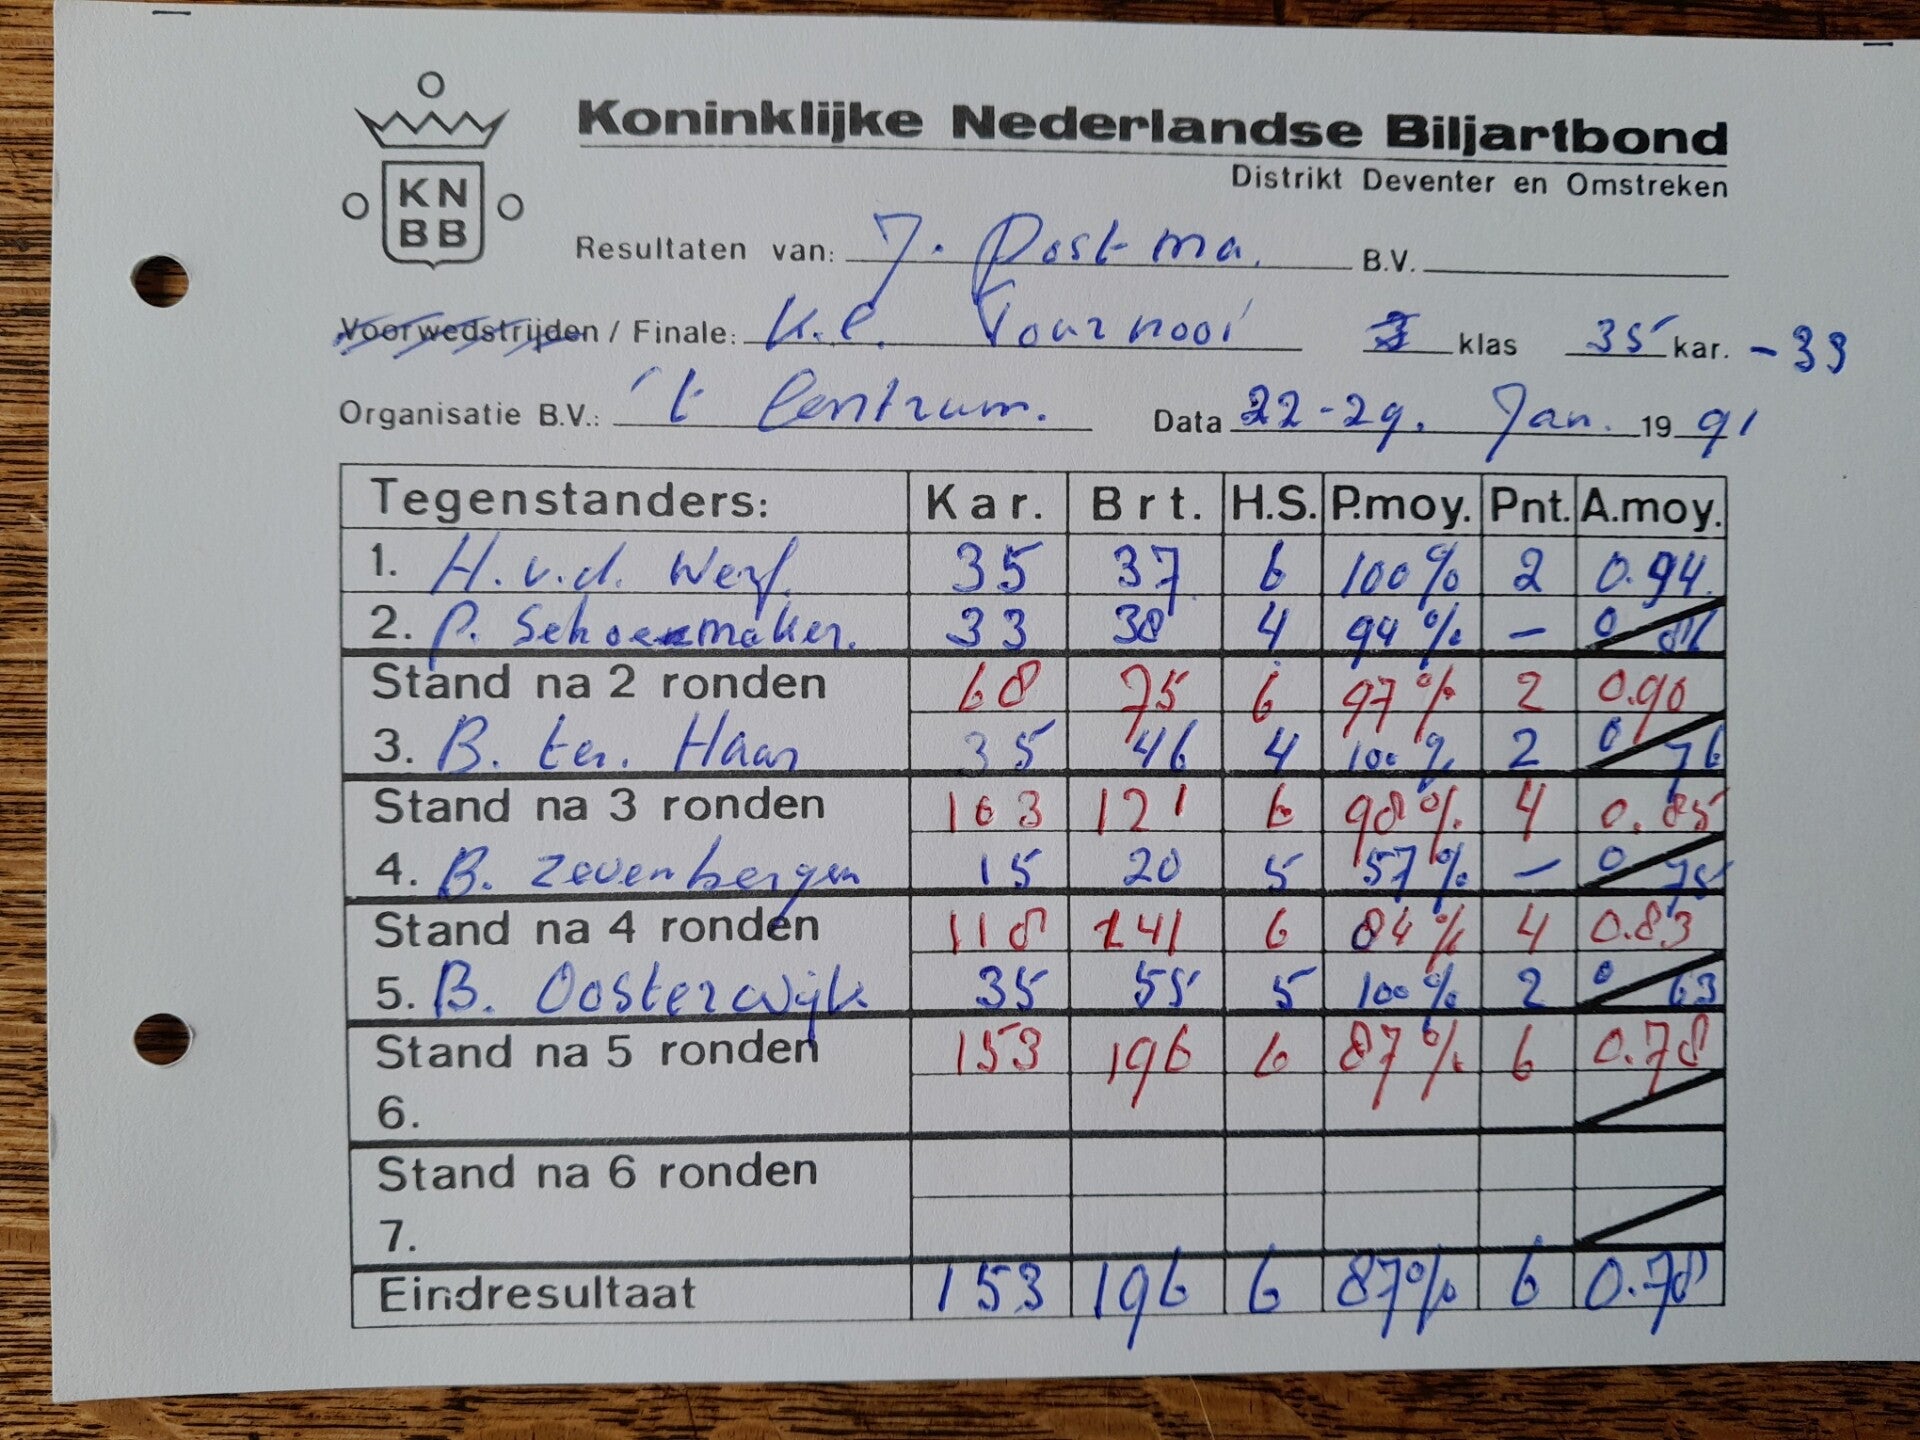 KN
BB
Koninklijke Nederlandse Biljartbond
Distrikt Deventer en Omstreken
Resultaten van: J. Postma. B.V.
Voorwedstrijden / Finale: K.l. Tournooi 3 klas 35 kar. - 33
Organisatie B.V.: 't Centrum. Data 22-29. Jan. 19 91
Tegenstanders: Kar. Brt. H.S. P.moy. Pnt. A.moy.
1. H.v.d. Werf. 35 37 6 100% 2 0.94.
2. P. Schoenmaker. 33 38 4 94% - 0 86
Stand na 2 ronden 68 75 6 97% 2 0.90
3. B. ter. Haar 35 46 4 100% 2 0 76
Stand na 3 ronden 103 121 6 98% 4 0.85
4. B. Zevenbergen 15 20 5 57% - 0 75
Stand na 4 ronden 118 141 6 84% 4 0.83
5. B. Oosterwijk 35 55 5 100% 2 0 63
Stand na 5 ronden 153 196 6 87% 6 0.78
6.
Stand na 6 ronden
7.
Eindresultaat 153 196 6 87% 6 0.78